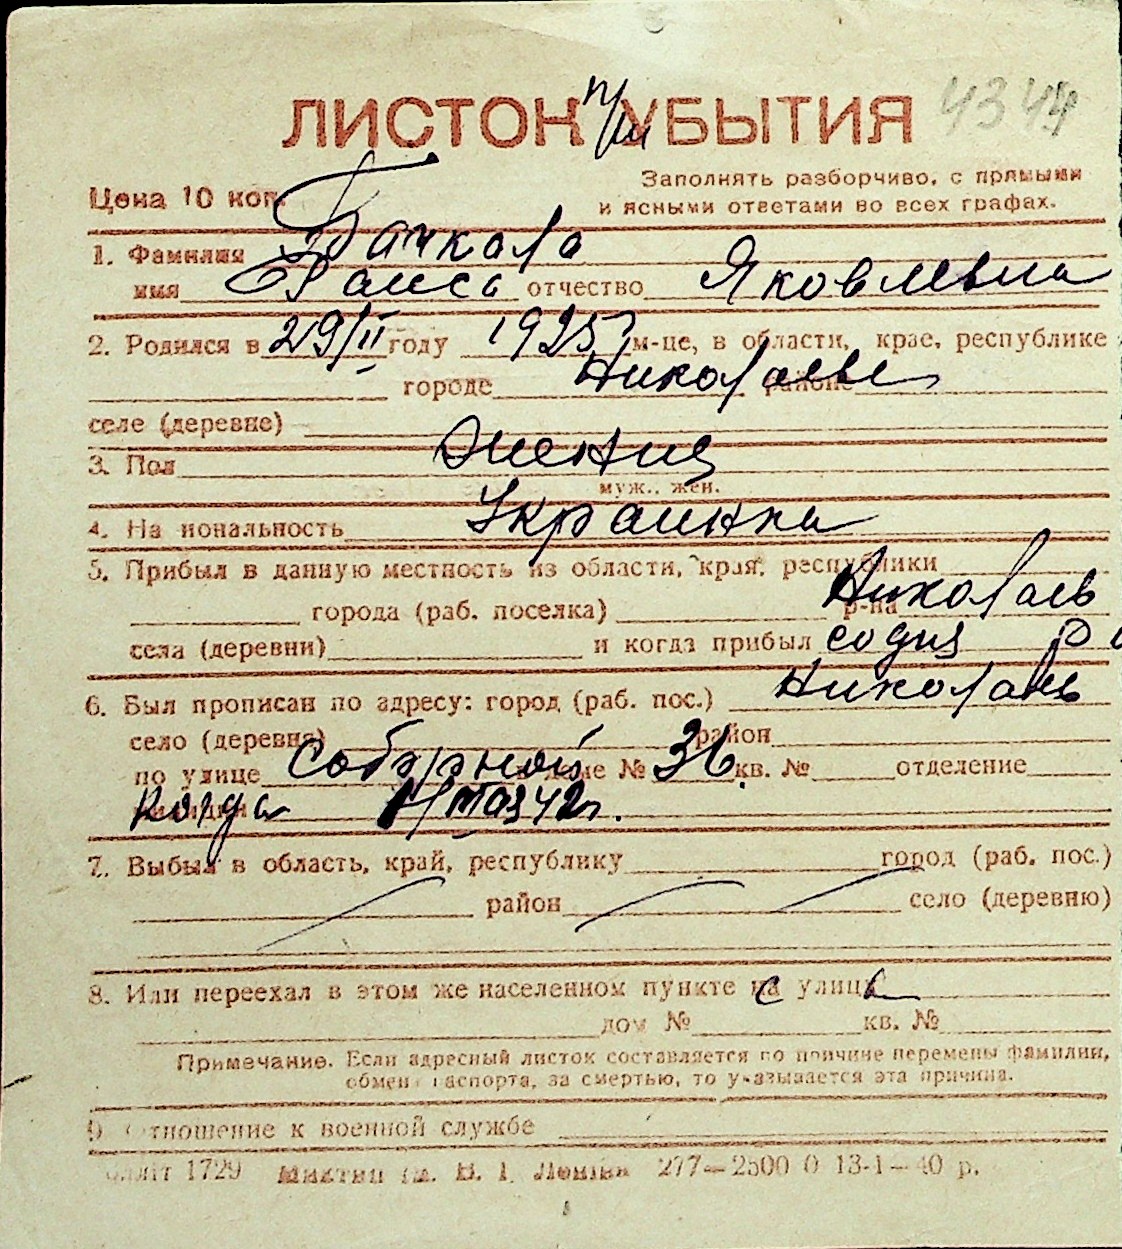 ЛИСТОК п/ш УБЫТИЯ 4344
Цена 10 коп.
Заполнять разборчиво, с прямыми
и ясными ответами во всех графах.
1. Фамилия Бачкала
имя Раиса отчество Яковлевна
2. Родился в 29/II году 1925 м-це, в области, крае, республике
городе Николаеве районе
селе (деревне)
3. Пол женщ
муж., жен.
4. Национальность Украинка
5. Прибыл в данную местность из области, края, республики
города (раб. поселка) р-на Николаев
села (деревни) и когда прибыл со дня
6. Был прописан по адресу: город (раб. пос.) Николаев
село (деревня) район
по улице Соборной доме № 36 кв. № отделение
милиции когда
7. Выбыл в область, край, республику город (раб. пос.)
район село (деревню)
8. Или переехал в этом же населенном пункте на улицу
дом № кв. №
Примечание. Если адресный листок составляется по причине перемены фамилии,
обмена паспорта, за смертью, то указывается эта причина.
9. Отношение к военной службе
1729 277—2500 0 13-1—40 р.